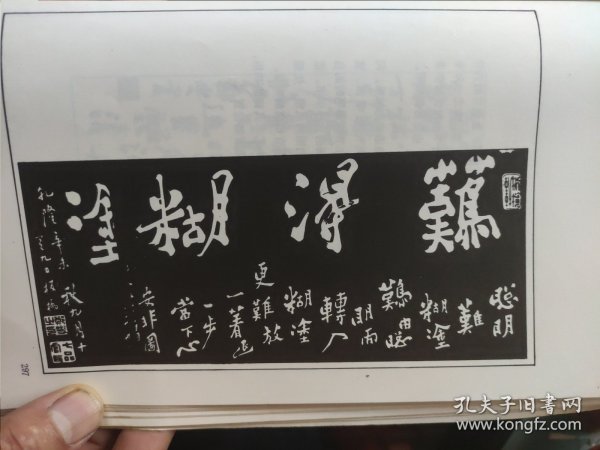 難得糊塗
聰明
難
糊塗
難由聰
明而
轉入
糊塗
更難放
一著退
一步
當下心
安非圖
乾隆辛未秋九月十
有九日板橋
297
孔夫子旧书网
www.kongfz.com